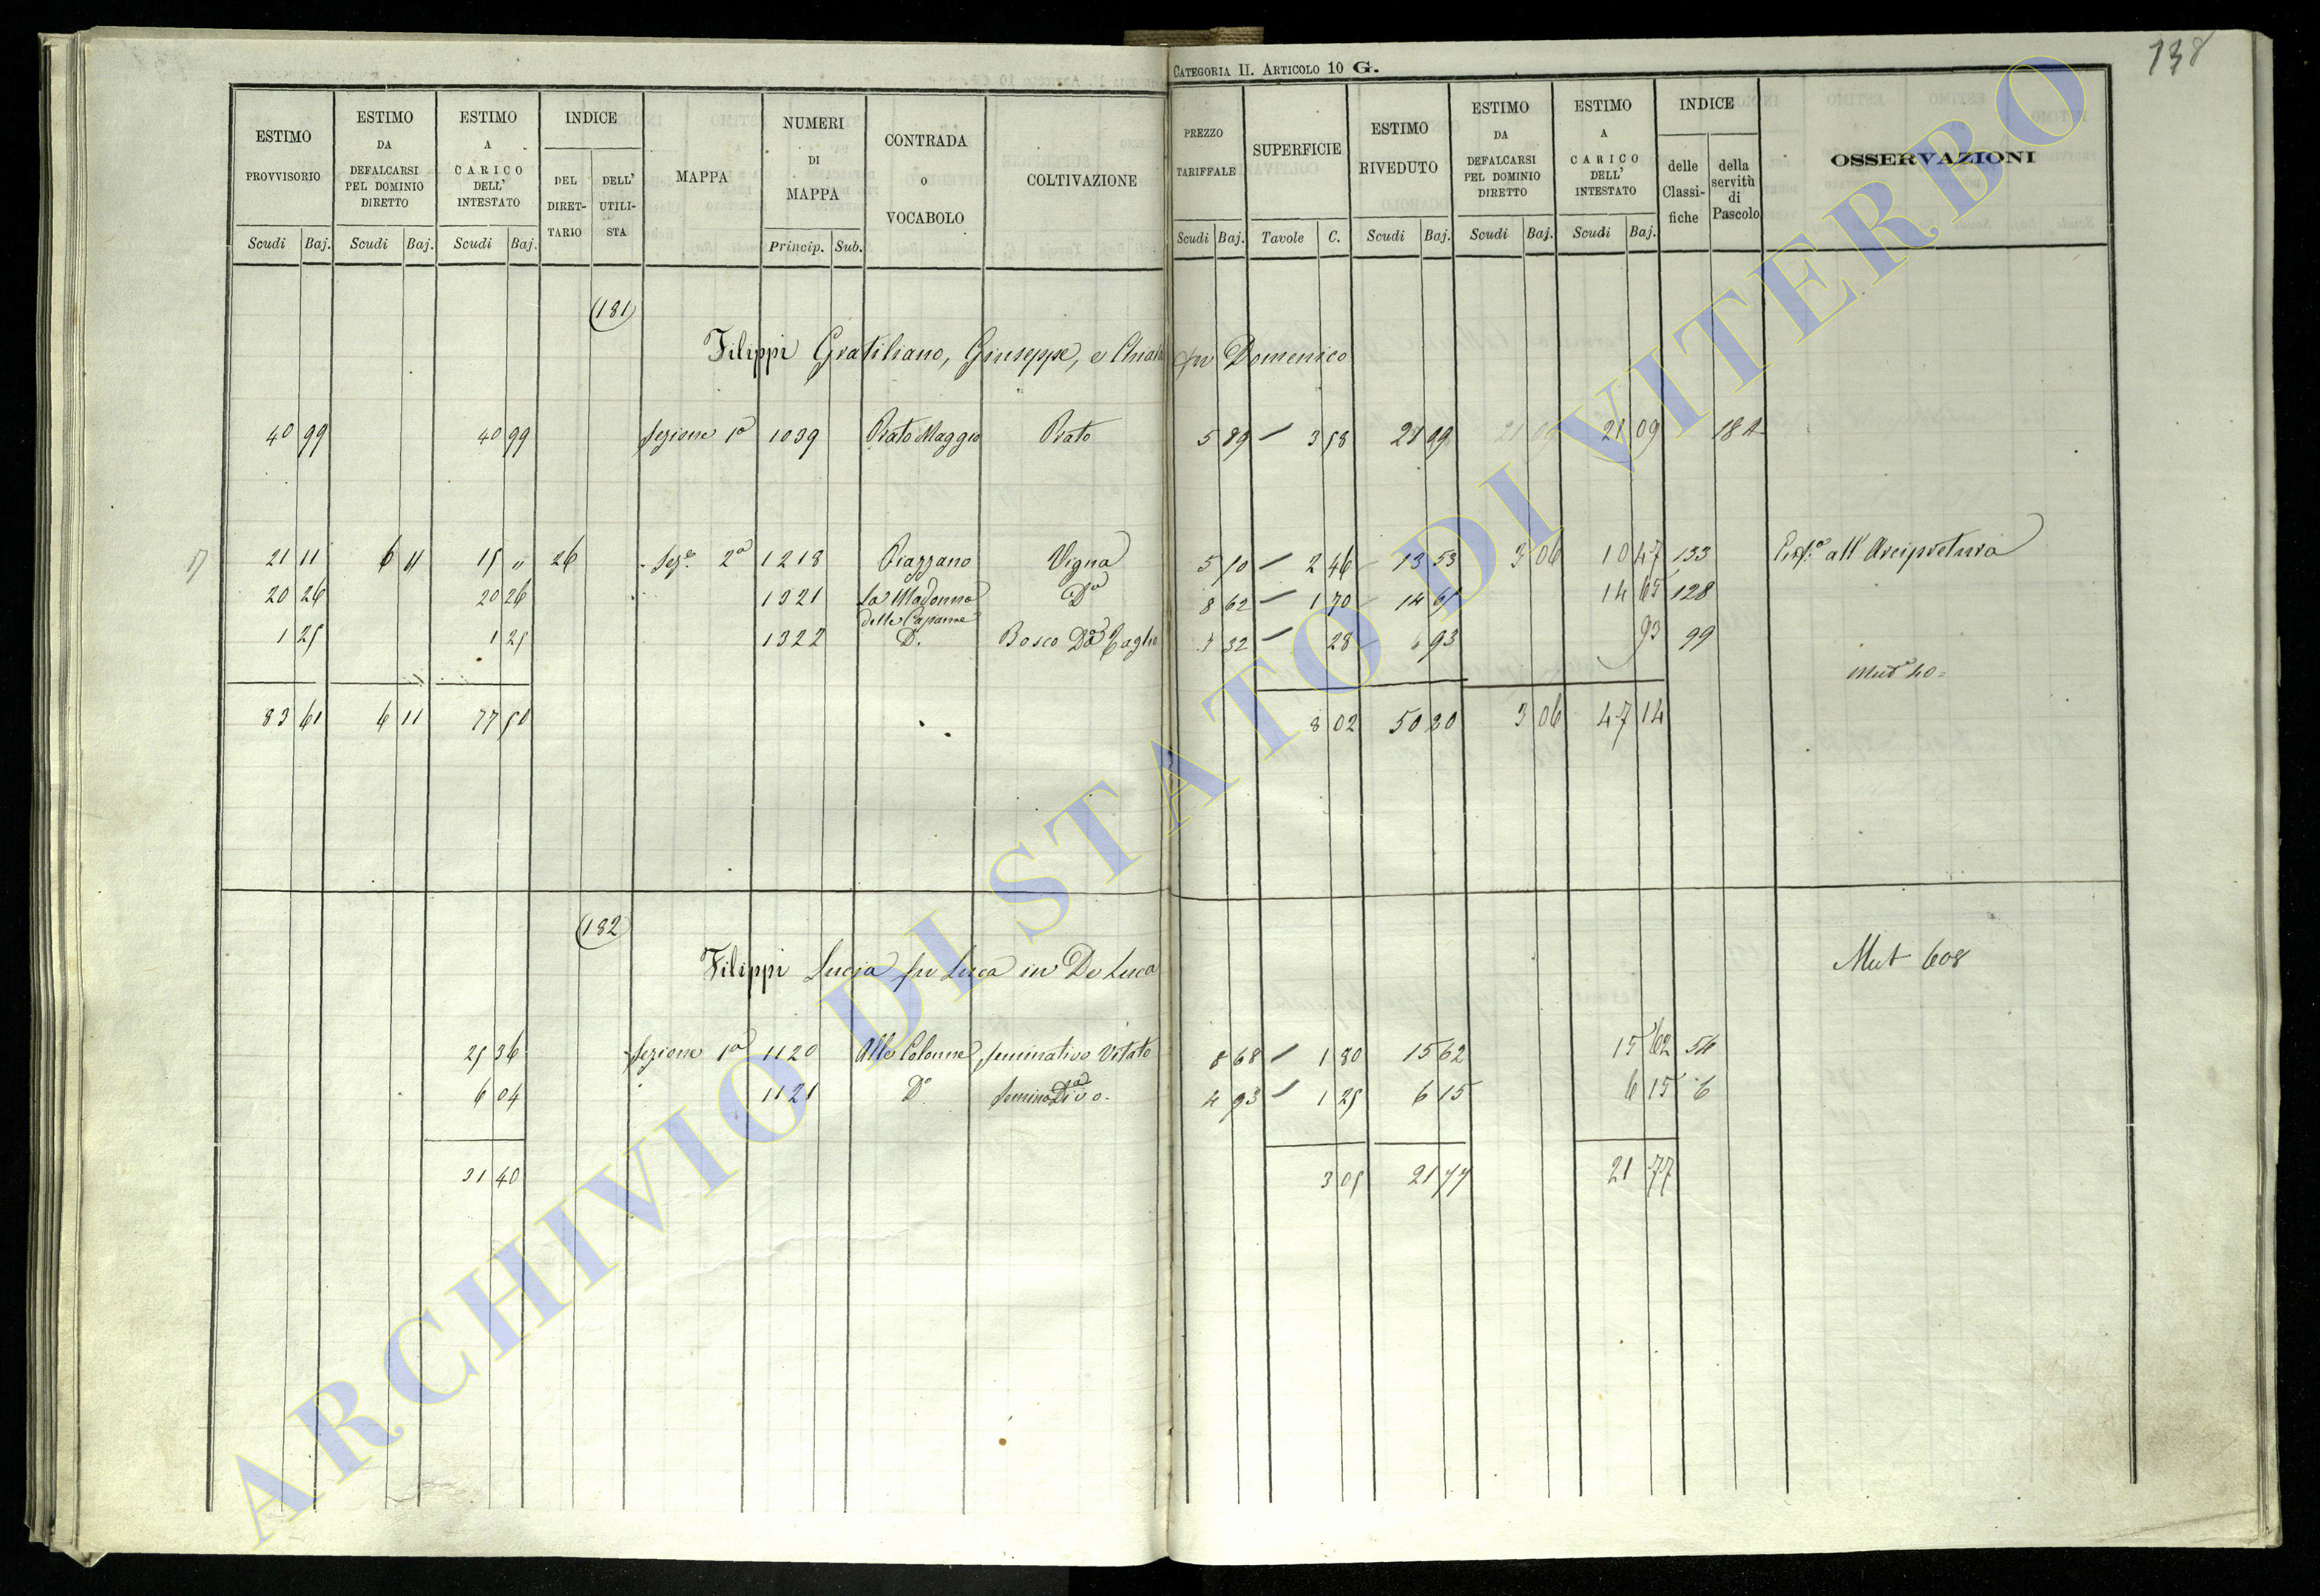 138
CATEGORIA II. ARTICOLO 10 G.
ESTIMO PROVVISORIO
ESTIMO DA DEFALCARSI PEL DOMINIO DIRETTO
ESTIMO A CARICO DELL' INTESTATO
INDICE
DEL DIRET-TARIO
DELL' UTILI-STA
MAPPA
NUMERI DI MAPPA
CONTRADA o VOCABOLO
COLTIVAZIONE
PREZZO TARIFFALE
SUPERFICIE
ESTIMO RIVEDUTO
ESTIMO DA DEFALCARSI PEL DOMINIO DIRETTO
ESTIMO A CARICO DELL' INTESTATO
INDICE
delle Classi-fiche
della servitù di Pascolo
OSSERVAZIONI
Scudi Baj. Scudi Baj. Scudi Baj. Princip. Sub. Scudi Baj. Tavole C. Scudi Baj. Scudi Baj. Scudi Baj.
(181)
Filippi Gratiliano, Giuseppe, e Chiara fu Domenico
40 99 40 99 Sezione 1a 1039 Prato Maggio Prato 5 89 3 58 21 09 21 09 18 A
21 11 6 11 15 " 26 Sez.e 2a 1218 Piazzano Vigna 5 10 2 46 13 53 3 06 10 47 133 all'Arcipretura
20 26 20 26 1321 La Madonna delle Capanne Da 8 62 1 70 14 65 14 65 128
1 25 1 25 1322 D. Bosco Da Taglio 3 32 28 93 93 99
83 61 6 11 77 50 8 02 50 20 3 06 47 14
(182)
Filippi Lucia fu Luca in De Luca
Mut 608
25 36 Sezione 1a 1120 Alle Colonne Seminativo Vitato 8 68 1 80 15 62 15 62 54
6 04 1121 Do 4 93 1 25 6 15 6 15 6
31 40 3 05 21 77 21 77
ARCHIVIO DI STATO DI VITERBO